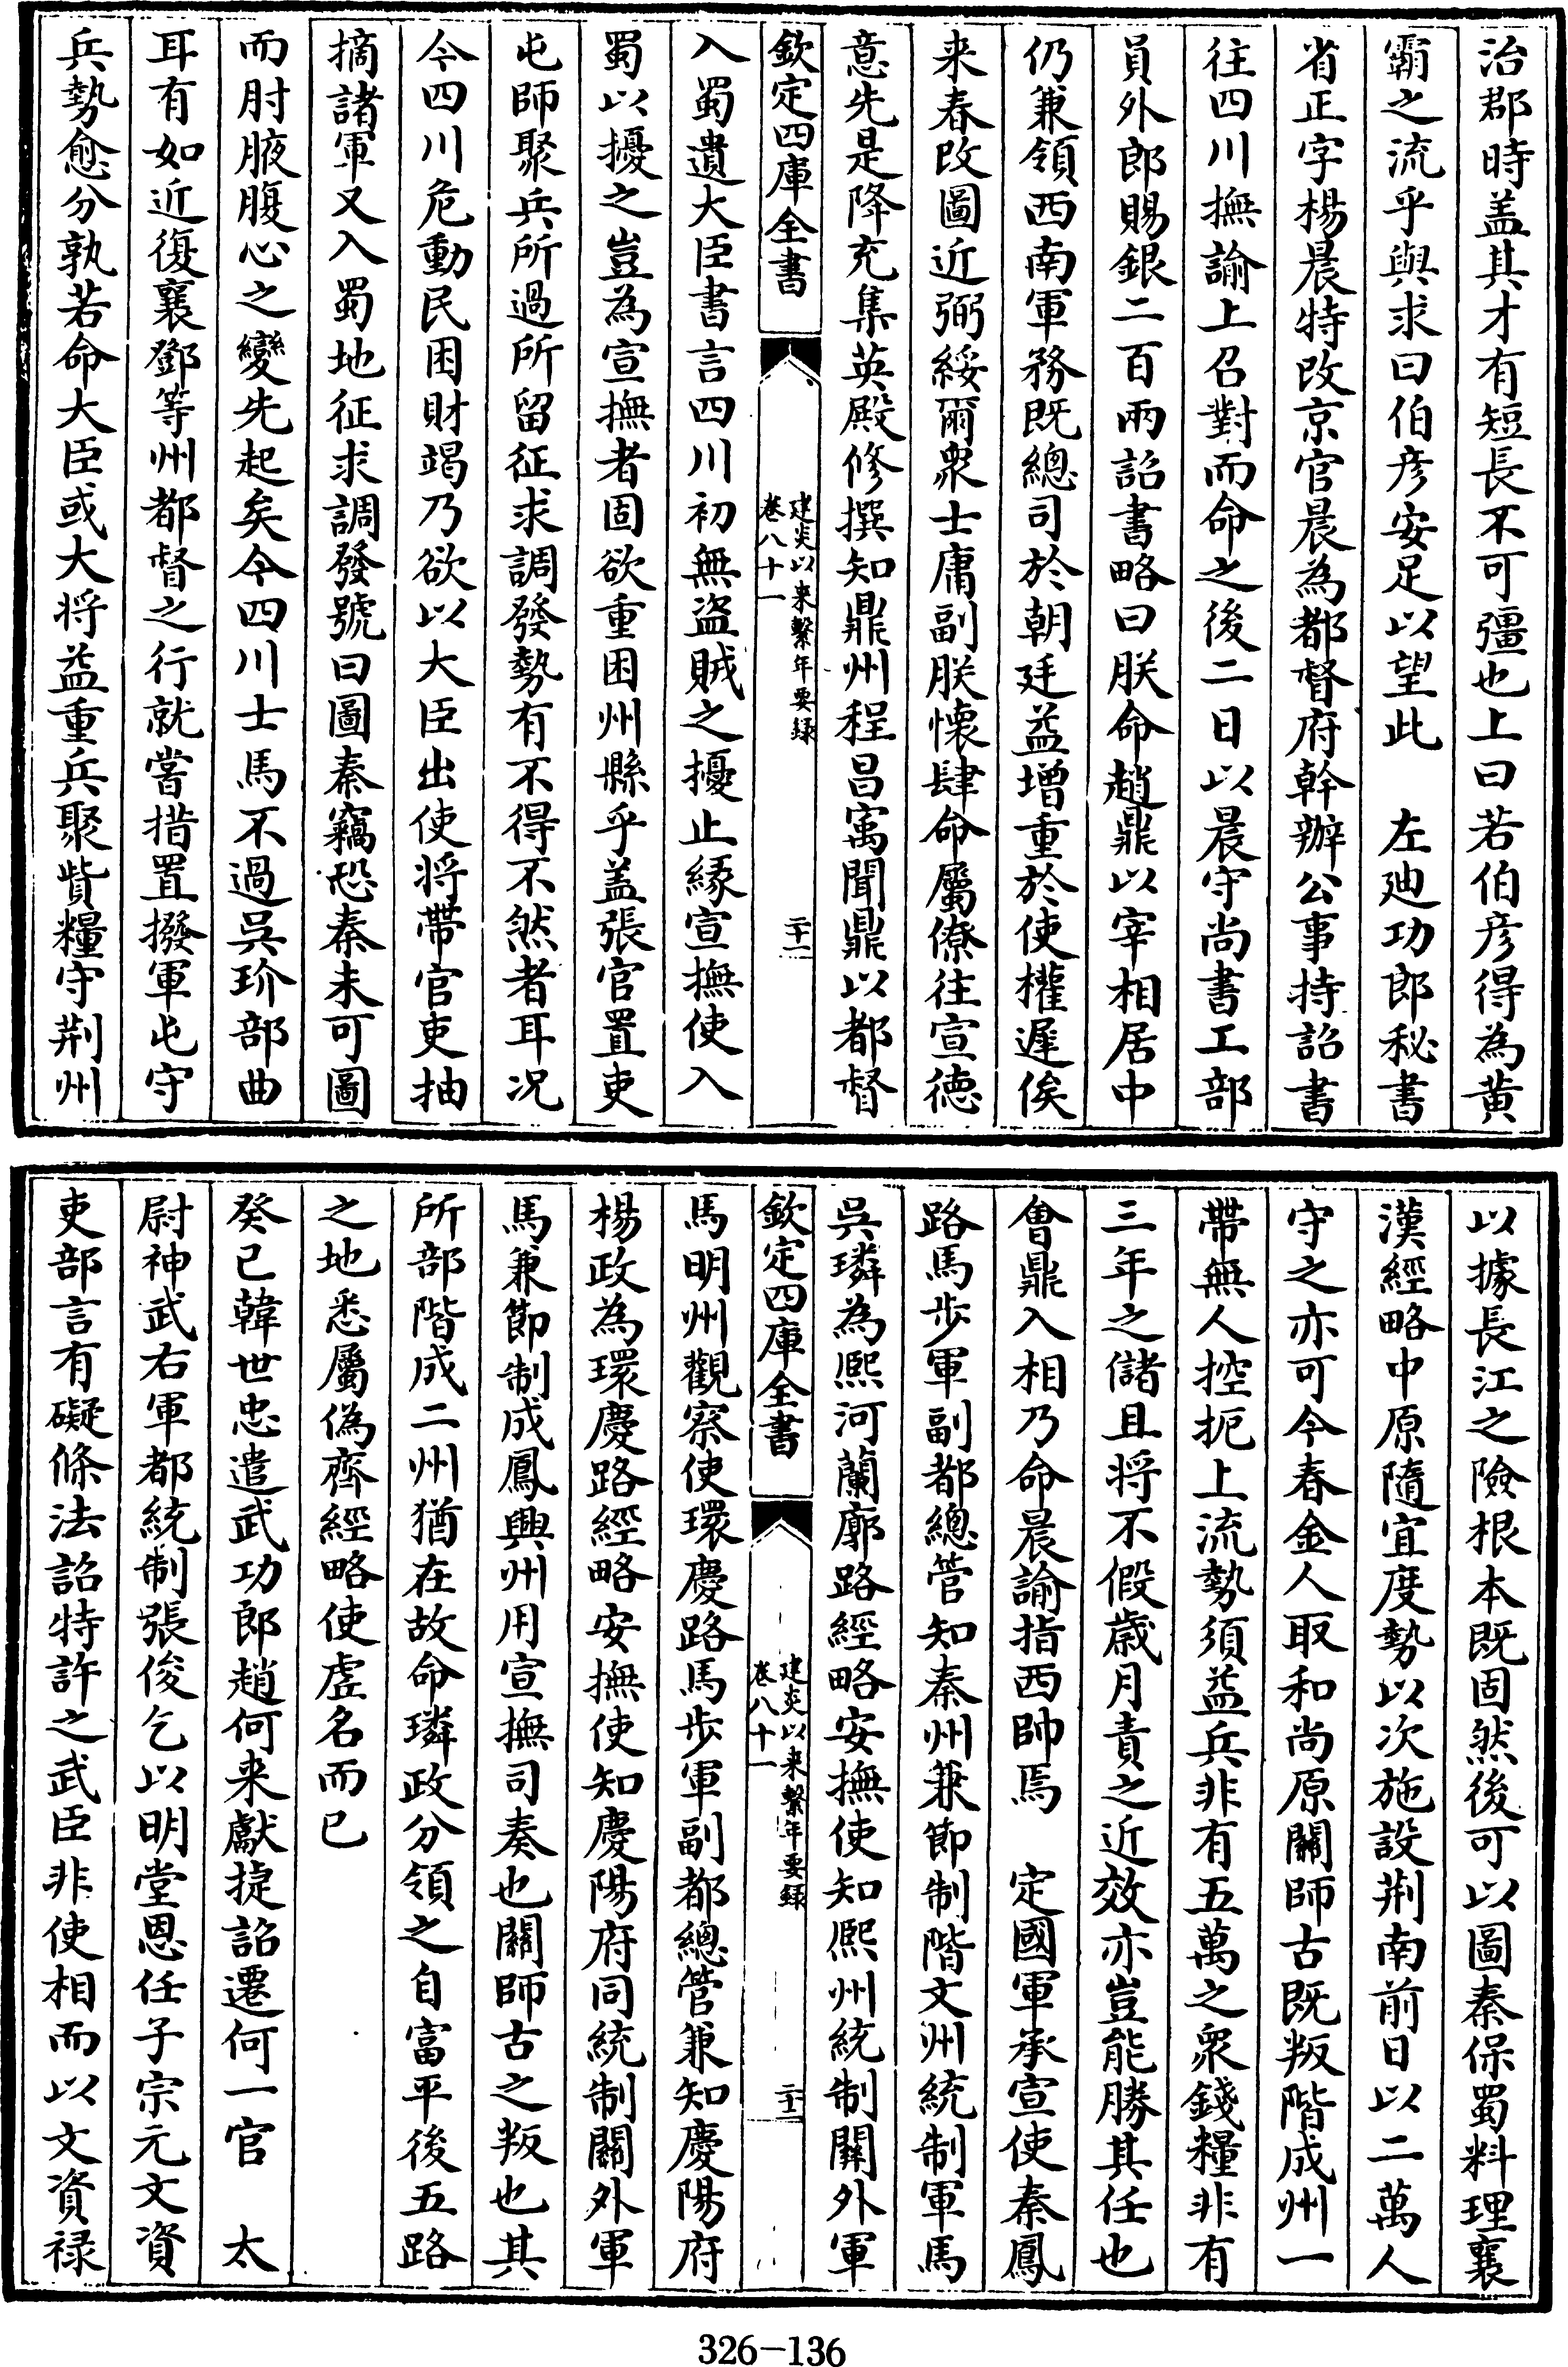 治郡時盖其才有短長不可彊也上曰若伯彦得為黄
霸之流乎與求曰伯彦安足以望此　左廸功郎秘書
省正字楊晨特改京官晨為都督府幹辦公事持詔書
往四川撫諭上召對而命之後二日以晨守尚書工部
員外郎賜銀二百兩詔書略曰朕命趙鼎以宰相居中
仍兼領西南軍務既總司於朝廷益增重於使權遲俟
来春改圖近弼綏爾衆士庸副朕懷肆命屬僚往宣德
意先是降充集英殿修撰知鼎州程昌㝢聞鼎以都督
欽定四庫全書
建炎以来繫年要録
卷八十一
二十一
入蜀遺大臣書言四川初無盗賊之擾止緣宣撫使入
蜀以擾之豈為宣撫者固欲重困州縣乎盖張官置吏
屯師聚兵所過所留征求調發勢有不得不然者耳况
今四川危動民困財竭乃欲以大臣出使将帶官吏抽
摘諸軍又入蜀地征求調發號曰圖秦竊恐秦未可圖
而肘腋腹心之變先起矣今四川士馬不過吳玠部曲
耳有如近復襄鄧等州都督之行就嘗措置撥軍屯守
兵勢愈分孰若命大臣或大将益重兵聚貲糧守荆州
以據長江之險根本既固然後可以圖秦保蜀料理襄
漢經略中原隨宜度勢以次施設荆南前日以二萬人
守之亦可今春金人取和尚原關師古既叛階成州一
帶無人控扼上流勢須益兵非有五萬之衆錢糧非有
三年之儲且将不假歲月責之近效亦豈能勝其任也
會鼎入相乃命晨諭指西帥焉　定國軍承宣使秦鳳
路馬步軍副都總管知秦州兼節制階文州統制軍馬
吳璘為熙河蘭廓路經略安撫使知熙州統制關外軍
欽定四庫全書
建炎以来繫年要録
卷八十一
二十二
馬明州觀察使環慶路馬步軍副都總管兼知慶陽府
楊政為環慶路經略安撫使知慶陽府同統制關外軍
馬兼節制成鳳興州用宣撫司奏也關師古之叛也其
所部階成二州猶在故命璘政分領之自富平後五路
之地悉屬偽齊經略使虚名而已
癸已韓世忠遣武功郎趙何来獻捷詔遷何一官　太
尉神武右軍都統制張俊乞以明堂恩任子宗元文資
吏部言有礙條法詔特許之武臣非使相而以文資禄
326-136